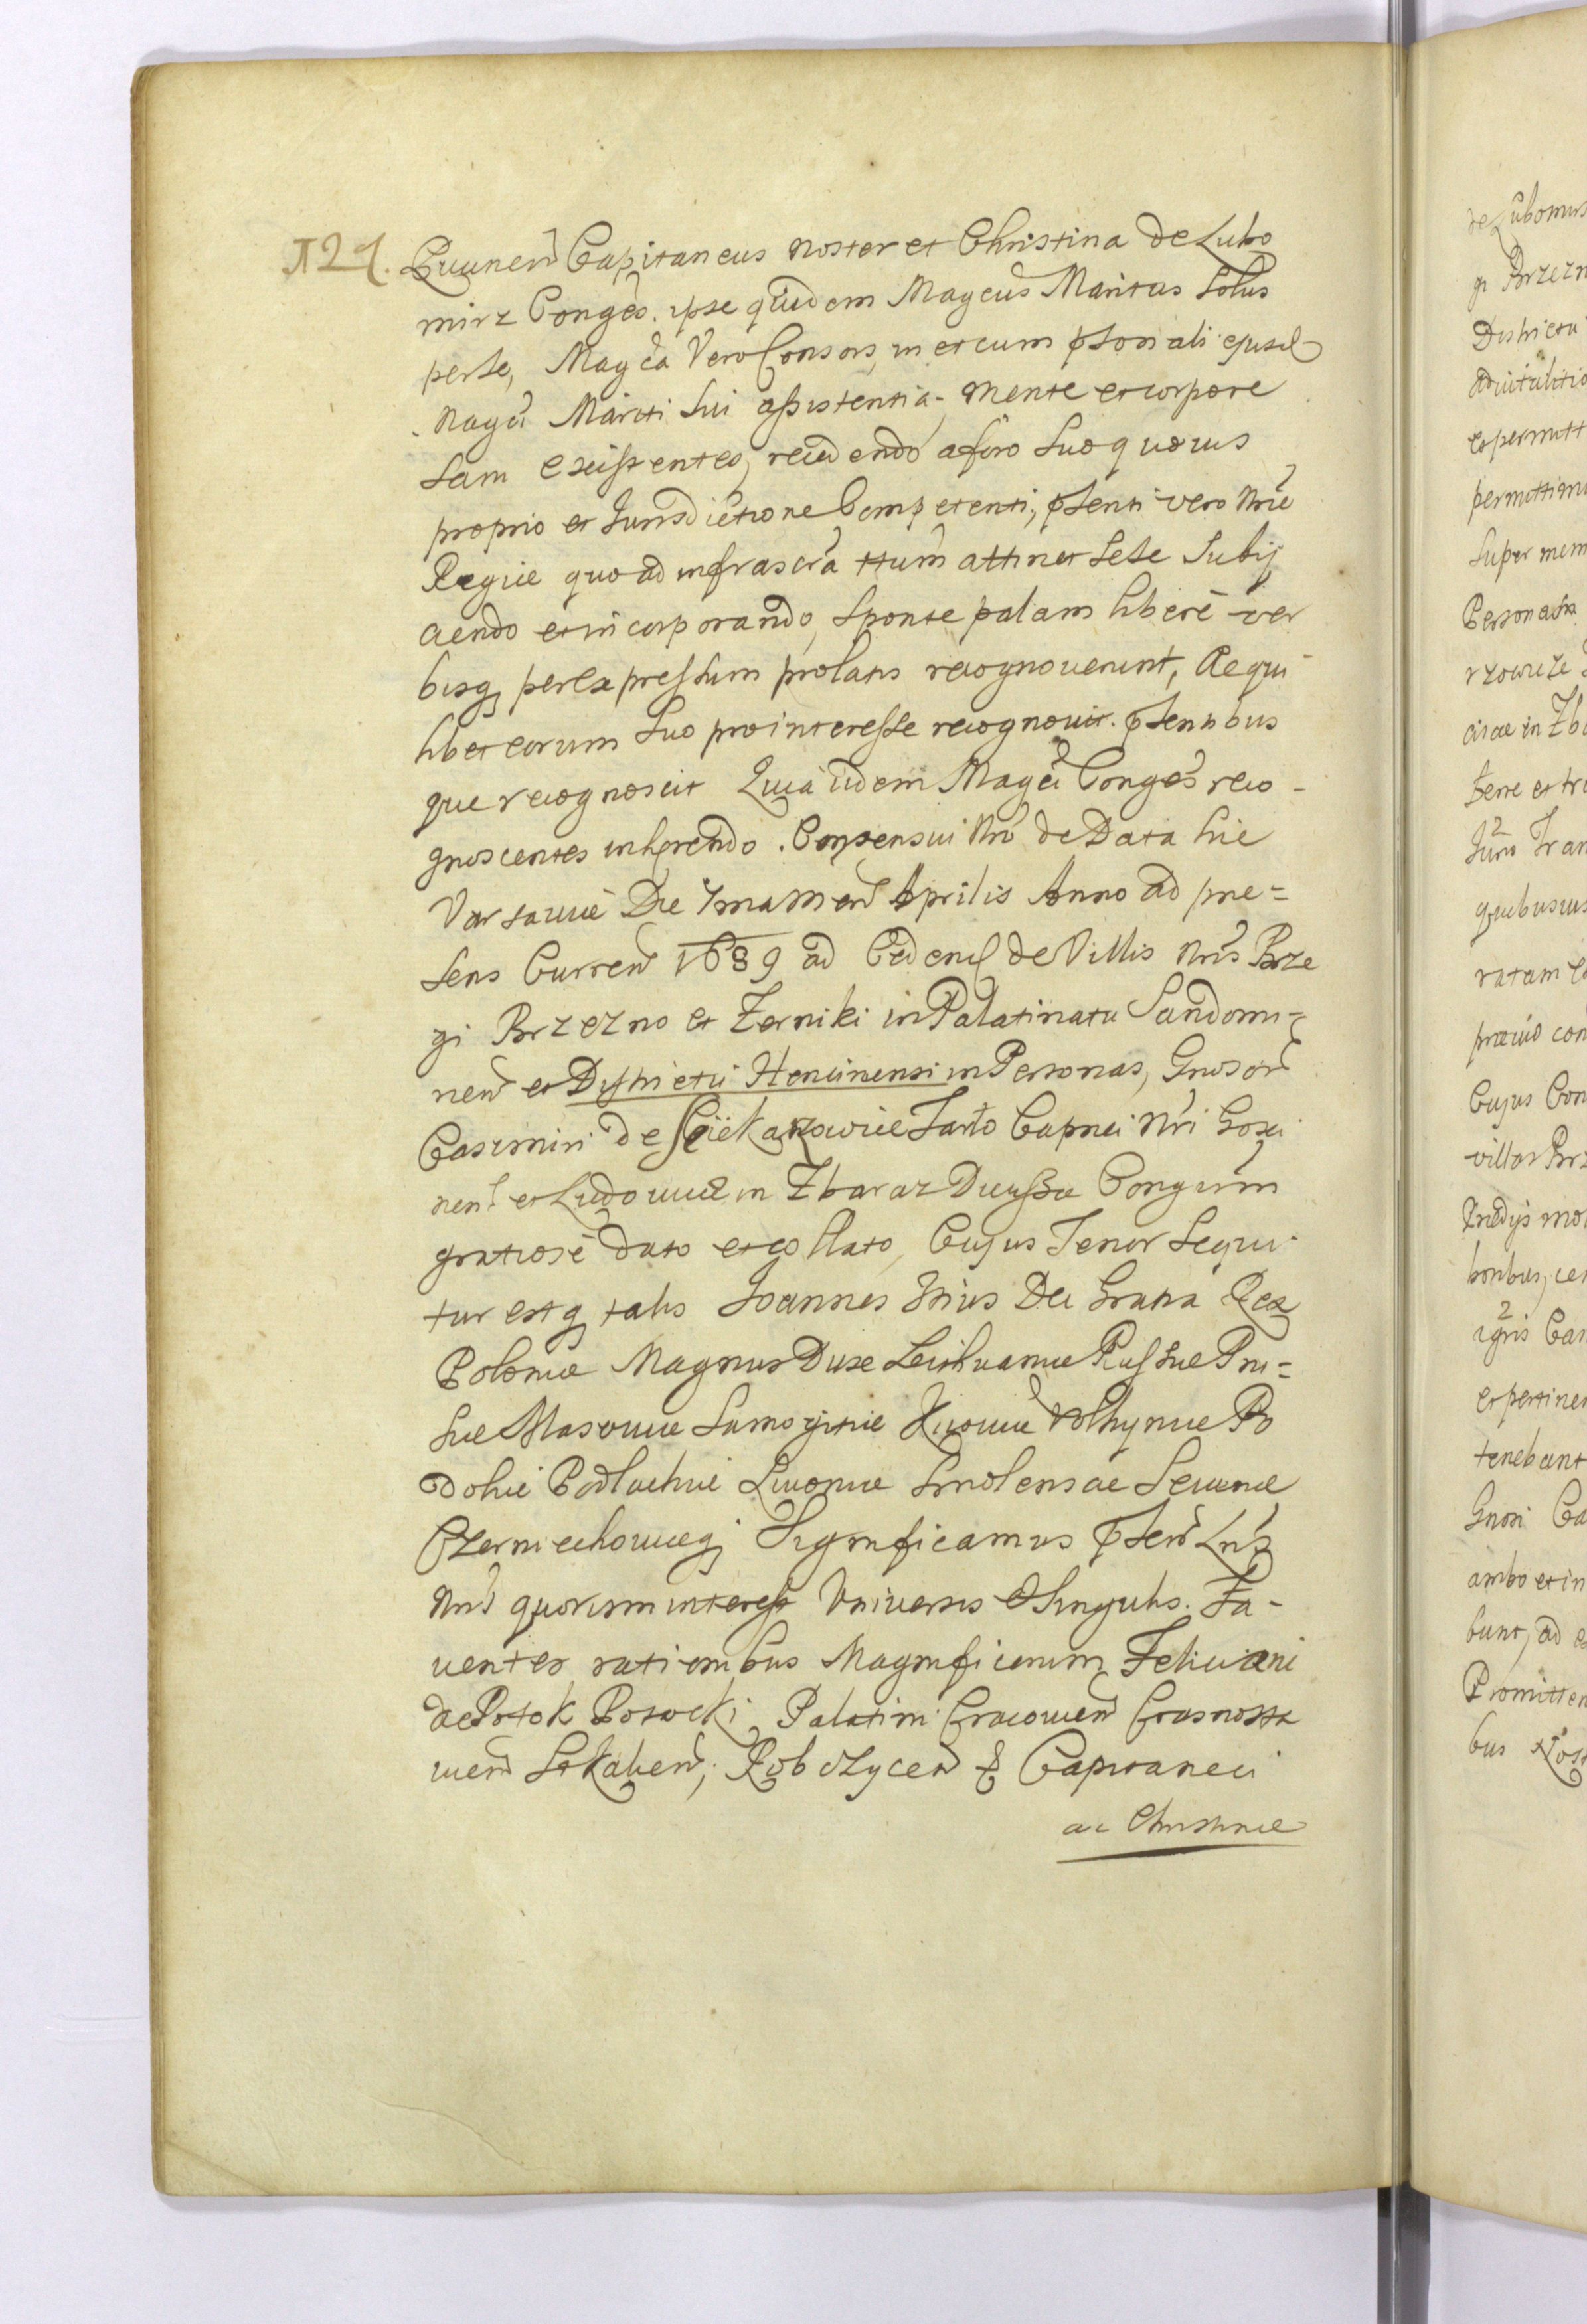 Luunen Capitaneus noster et Christina de Lubo
mirz Conges. ipse quidem Magcus Maritus Solus
perse, Magca Vero Consors, in et cum psonali ejusd
Magci Mariti Sui assistentia. Mente et corpore
Sani existentes, recedendo a foro Suo quovis
proprio et Jurisdictione Competenti, psenti vero Nrae
Regiae quoad infrascra ttum attinet Sese Subij
ciendo et incorporando, Sponte palam libere ver
bisq per expressum prolatis recognoverunt, Ac qui
libet eorum Suo pro interesse recognovit. psentibus
que recognoscit Quia iidem Magci Conges reco-
gnoscentes inhaerendo. Consensui Nro de Data hic
Varsaviae Die 7ma Mens Aprilis Anno ad prae=
sens Curren 1689 ad Cedend de Villis Nris Brze
gi Brzezno et Zerniki in Palatinatu Sandomi=
rien et Districtu Hencinensi in Personas, Gnosor
Casimiri de Tarło Capnei Nri
nens et Ludovicae in Zbaraz Ducissae Congum
gratiose dato et collato, Cujus Tenor Sequi
tur estq talis Joannes 3tius Dei Gratia Rex
Poloniae Magnus Dux Lithuaniae Russiae Pru=
siae Masoviae Samogitiae Kijoviae Volhyniae Po
doliae Podlachiae Livoniae Smolensciae Severiae
Czerniechoviaeq Significamus psen Lris
Nris quorum interest Universis et Singulis. Fa-
ventes rationibus Magnificorum Feliciani
de Potok Potocki Palatini Cracovien Crasnosta
vien Robczycen & Capitanei
ac Christinae
de Lubomir
gi Brzezn
Districtu
advitalitio
et permitt
permittimu
Super mem
Personam
ciae in Zba
Jura Tran
quibusvis
ratam e
praevio con
Cujus Con
villas Brz
Praedijs mo
bonbus, ce
et pertinen
tenebunt
Gnosi Ca
ambo et in
bunt, ad e
Promitten